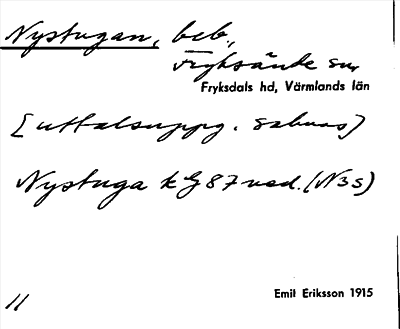 Nystugan, beb.,
Fryksände sn,
Fryksdals hd, Värmlands län
[uttalsuppg. saknas]
Nystuga k G 87 vsd. (N3s)
11
Emil Eriksson 1915